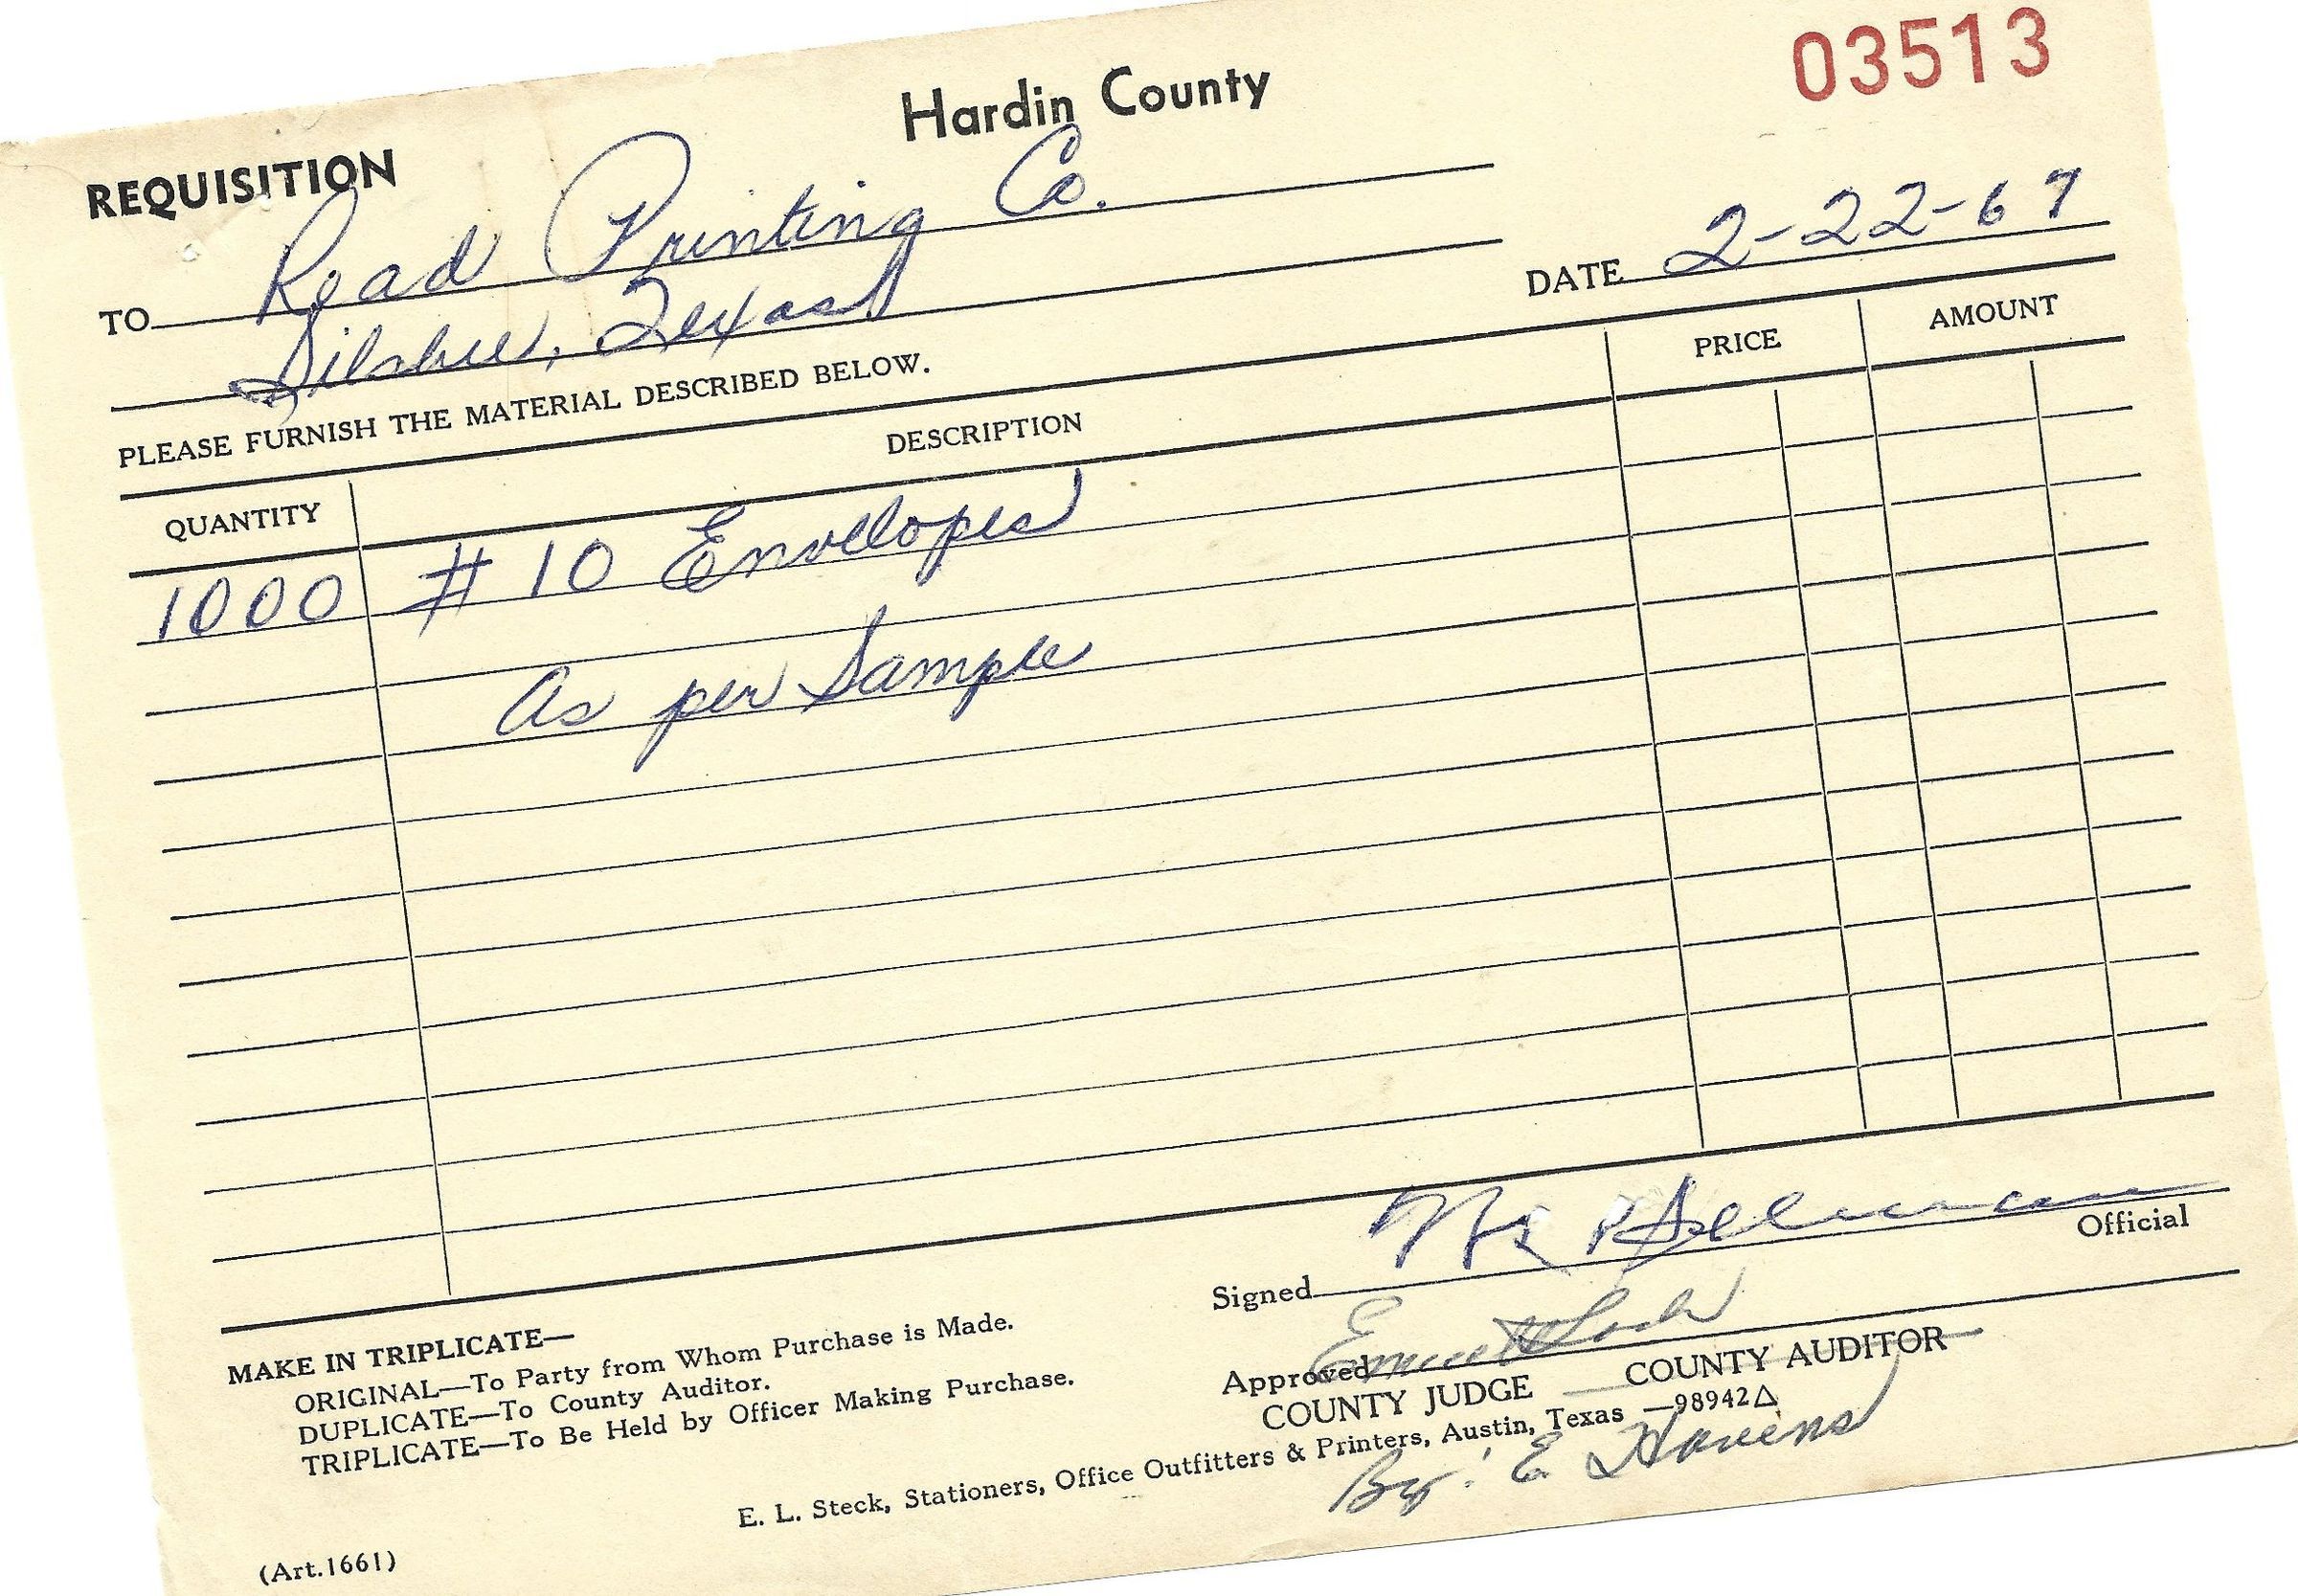 03513
Hardin County
REQUISITION
TO Read Printing Co.
Silsbee, Texas
DATE 2-22-67
PLEASE FURNISH THE MATERIAL DESCRIBED BELOW.
QUANTITY DESCRIPTION PRICE AMOUNT
1000 # 10 Envelopes
As per Sample
Signed
Official
Approved Emmett Lack
COUNTY JUDGE COUNTY AUDITOR
By: E Havens
MAKE IN TRIPLICATE—
ORIGINAL—To Party from Whom Purchase is Made.
DUPLICATE—To County Auditor.
TRIPLICATE—To Be Held by Officer Making Purchase.
E. L. Steck, Stationers, Office Outfitters & Printers, Austin, Texas —98942△
(Art.1661)